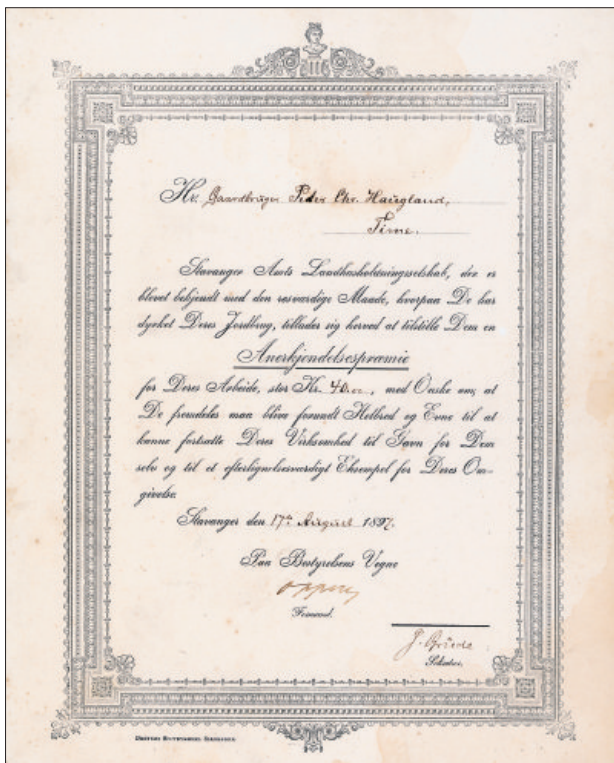 Hr. Gaardbruger Peder Chr. Haugland,
Time.
Stavanger Amts Landhusholdningsselskab, der er
blevet bekjendt med den rosværdige Maade, hvorpaa De har
dyrket Deres Jordbrug, tillader sig herved at tilstille Dem en
Anerkjendelsespræmie
for Deres Arbeide, stor Kr. 40.00, med Ønske om, at
De fremdeles maa blive forundt Helbred og Evne til at
kunne fortsætte Deres Virksomhed til Gavn for Dem
selv og til et efterlignelsesværdigt Exempel for Deres Om-
givelse.
Stavanger den 17de August 1897.
Paa Bestyrelsens Vegne
Formand.
Sekretær.